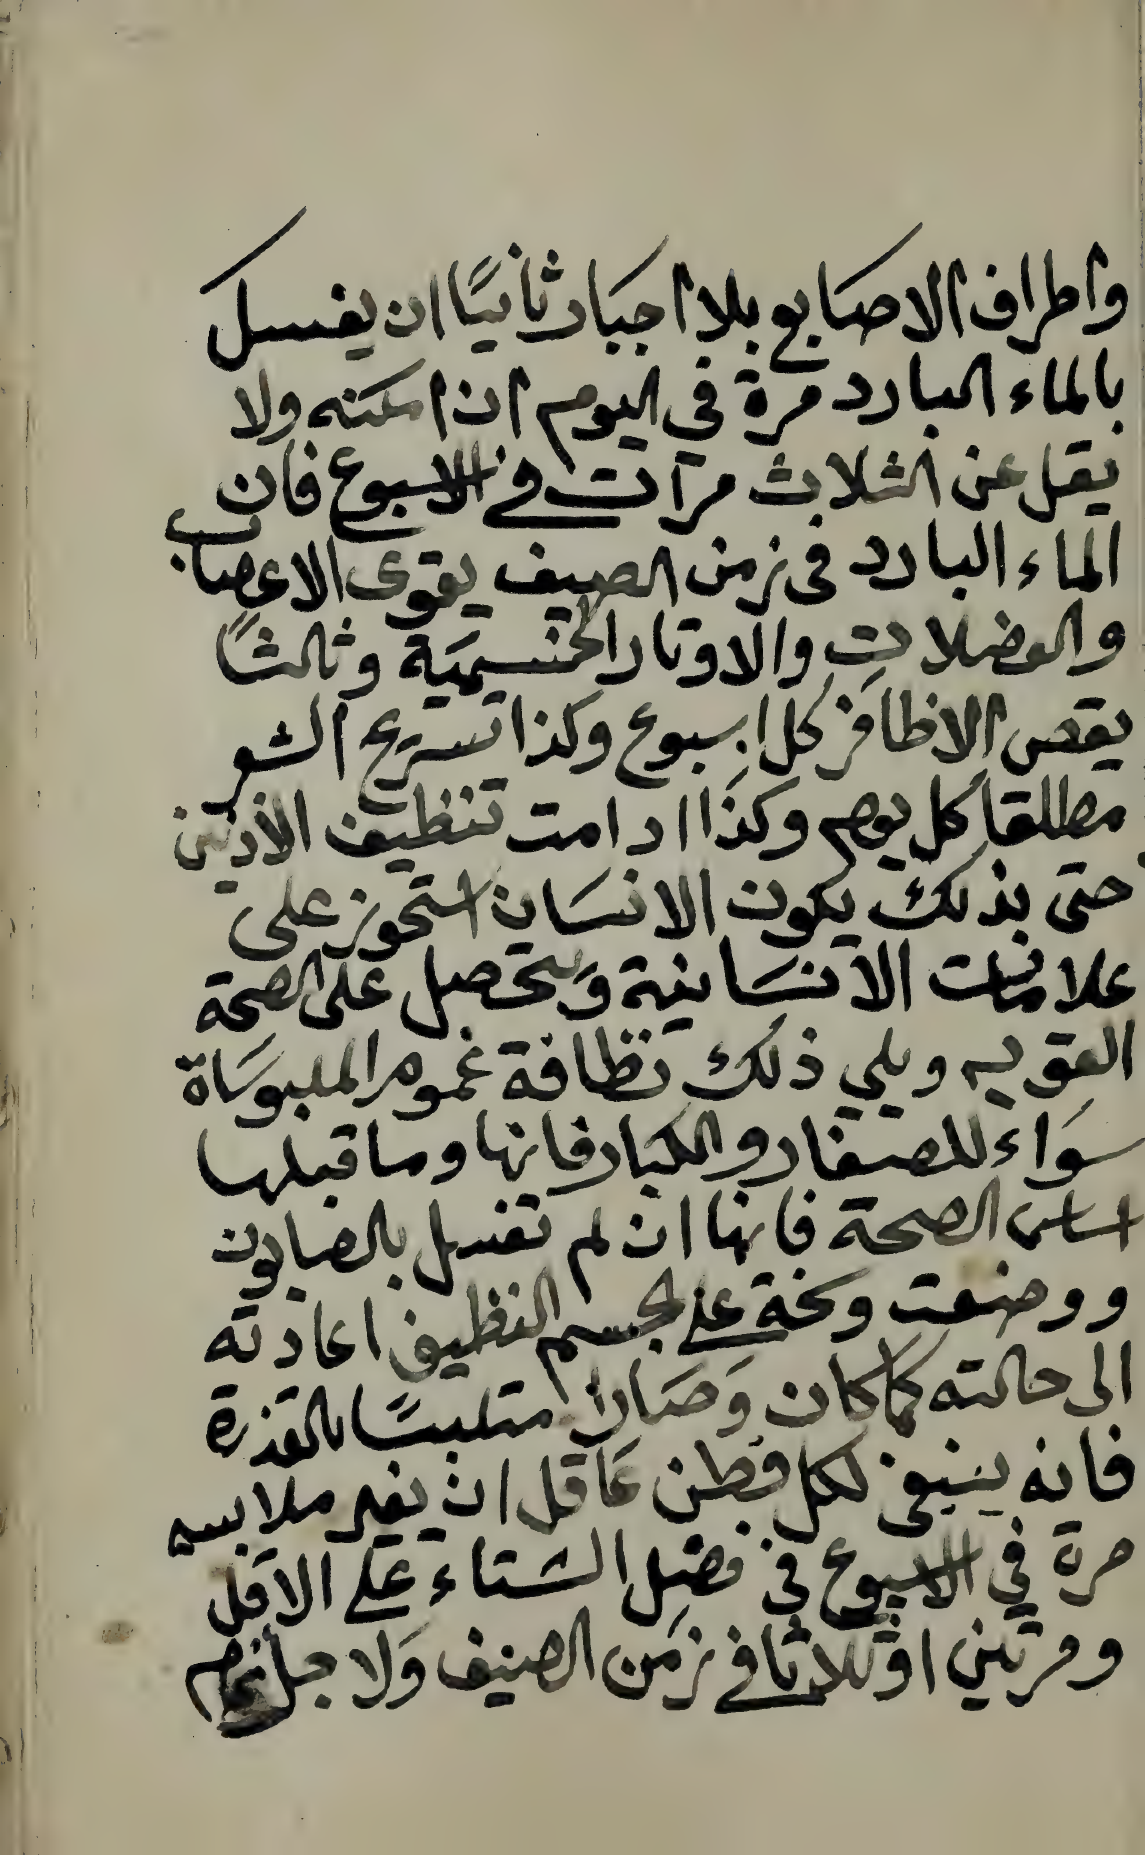 واطراف الاصابع بلا اجبار ثانيًا ان يغسل
بالماء البارد مرة في اليوم ان امكنه ولا
يقل عن الثلاث مرات في الاسبوع فان
الماء البارد فى زمن الصيف يقوى الاعصاب
والعضلات والاوتار الجسمية وثالثًا
يقص الاظافر كل اسبوع وكذا تسريح الشعر
مطلقا كل يوم وكذا ادامت تنظيف الأذنين
حتى بذلك يكون الانسان استحوز على
علامات الانسانية ويتحصل على الصحة
القويه ويلي ذلك نظافة عموم الملبوساة
سواء للصغار والكبار فانها وما قبلها
اساس الصحة فانها ان لم تغسل بالصابون
ووضعت وسخة على الجسم النظيف اعادته
الى حالته كما كان وصار متلبسًا بالقذرة
فانه ينبغى لكل فطن عاقل ان يغير ملابسه
مرة في الاسبوع في فصل الشتاء على الاقل
ومرتين او ثلاثا في زمن الصيف ولاجل